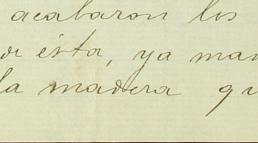 acabaron los
ésta, ya man
la madera qu